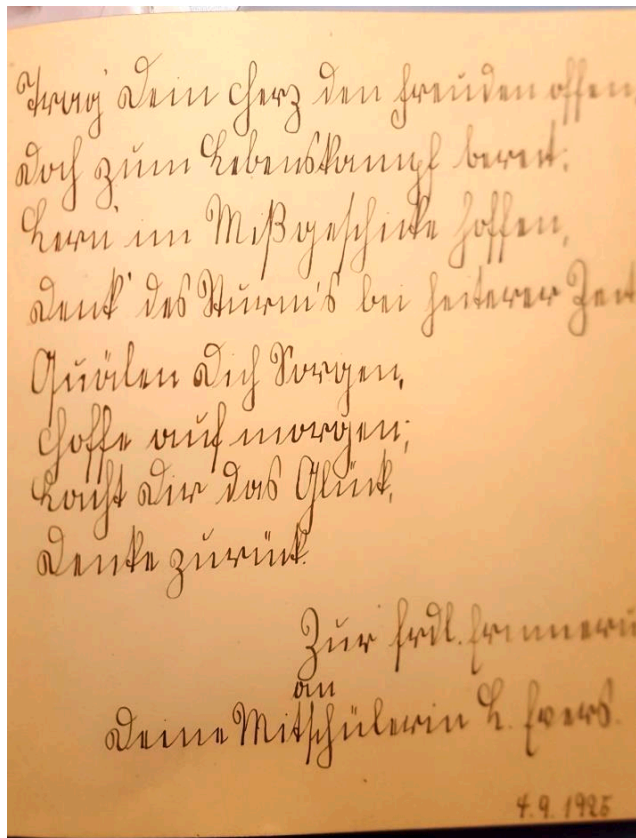 Trag' Dein Herz den Freuden offen
Doch zum Lebenskampf bereit;
Lern' im Mißgeschicke hoffen,
Denk' des Sturm's bei heiterer Zeit
Quälen Dich Sorgen,
Hoffe auf morgen;
Lacht Dir das Glück,
Denke zurück.
Zur frdl. Erinneru
an
Deine Mitschülerin L. Evers.
4.9.1925